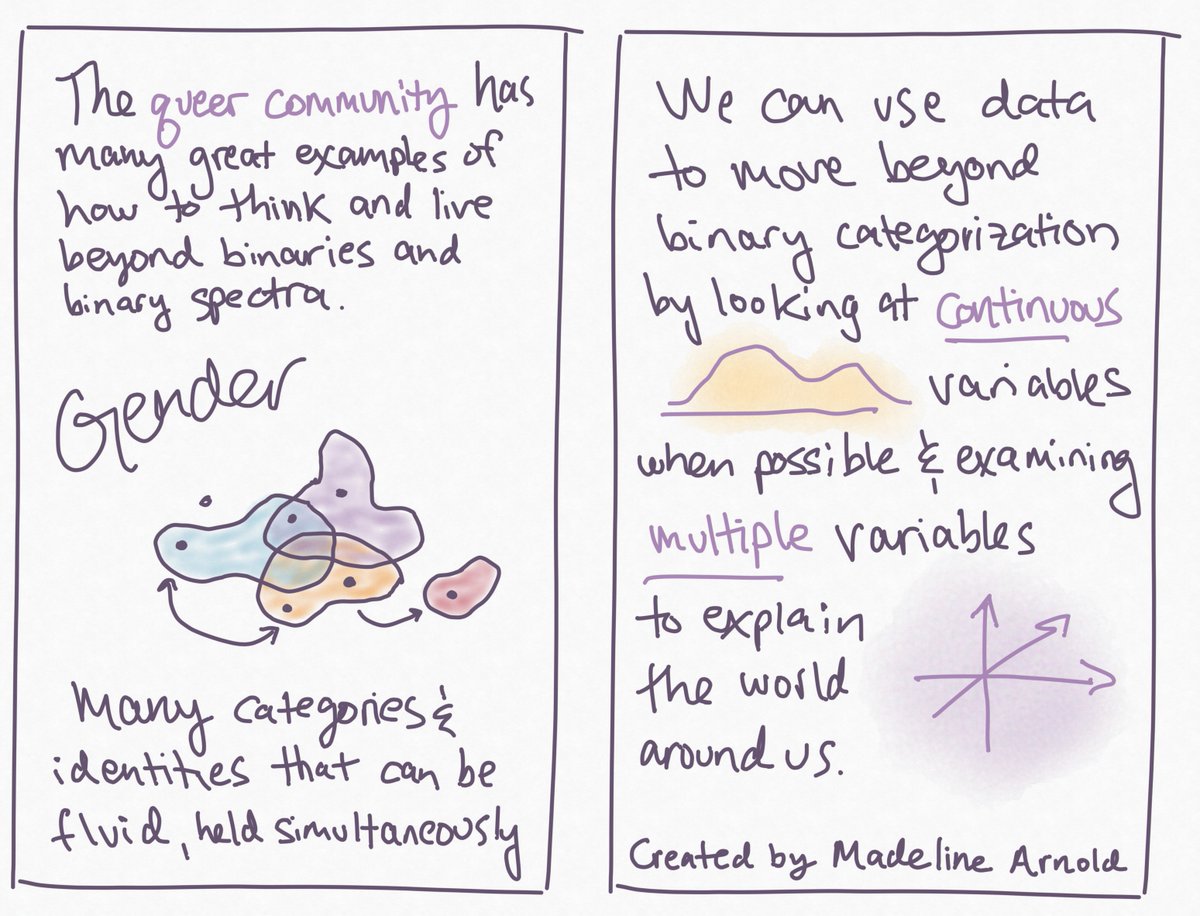 The queer community has
many great examples of
how to think and live
beyond binaries and
binary spectra.
Gender
Many categories &
identities that can be
fluid, held simultaneously
We can use data
to move beyond
binary categorization
by looking at continuous
variables
when possible & examining
multiple variables
to explain
the world
around us.
Created by Madeline Arnold